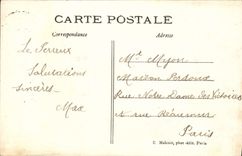 CARTE POSTALE
Correspondance
Adresse
Le Perreux
Salutations
sincères
Max
Mr Myon
Maison Perdoux
Rue Notre Dame des Victoires
et rue Réaumur
Paris
E. Malcuit, phot-édit, Paris